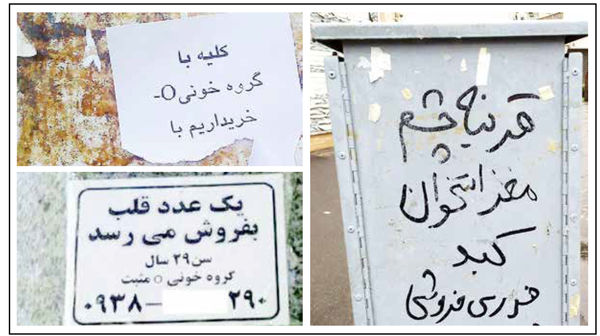 کلیه با
گروه خونی O-
خریداریم با
یک عدد قلب
بفروش می رسد
سن ۲۹ سال
گروه خونی o مثبت
۰۹۳۸— ۲۹۰
قرنیه چشم
مغز استخوان
کبد
فوری فروشی